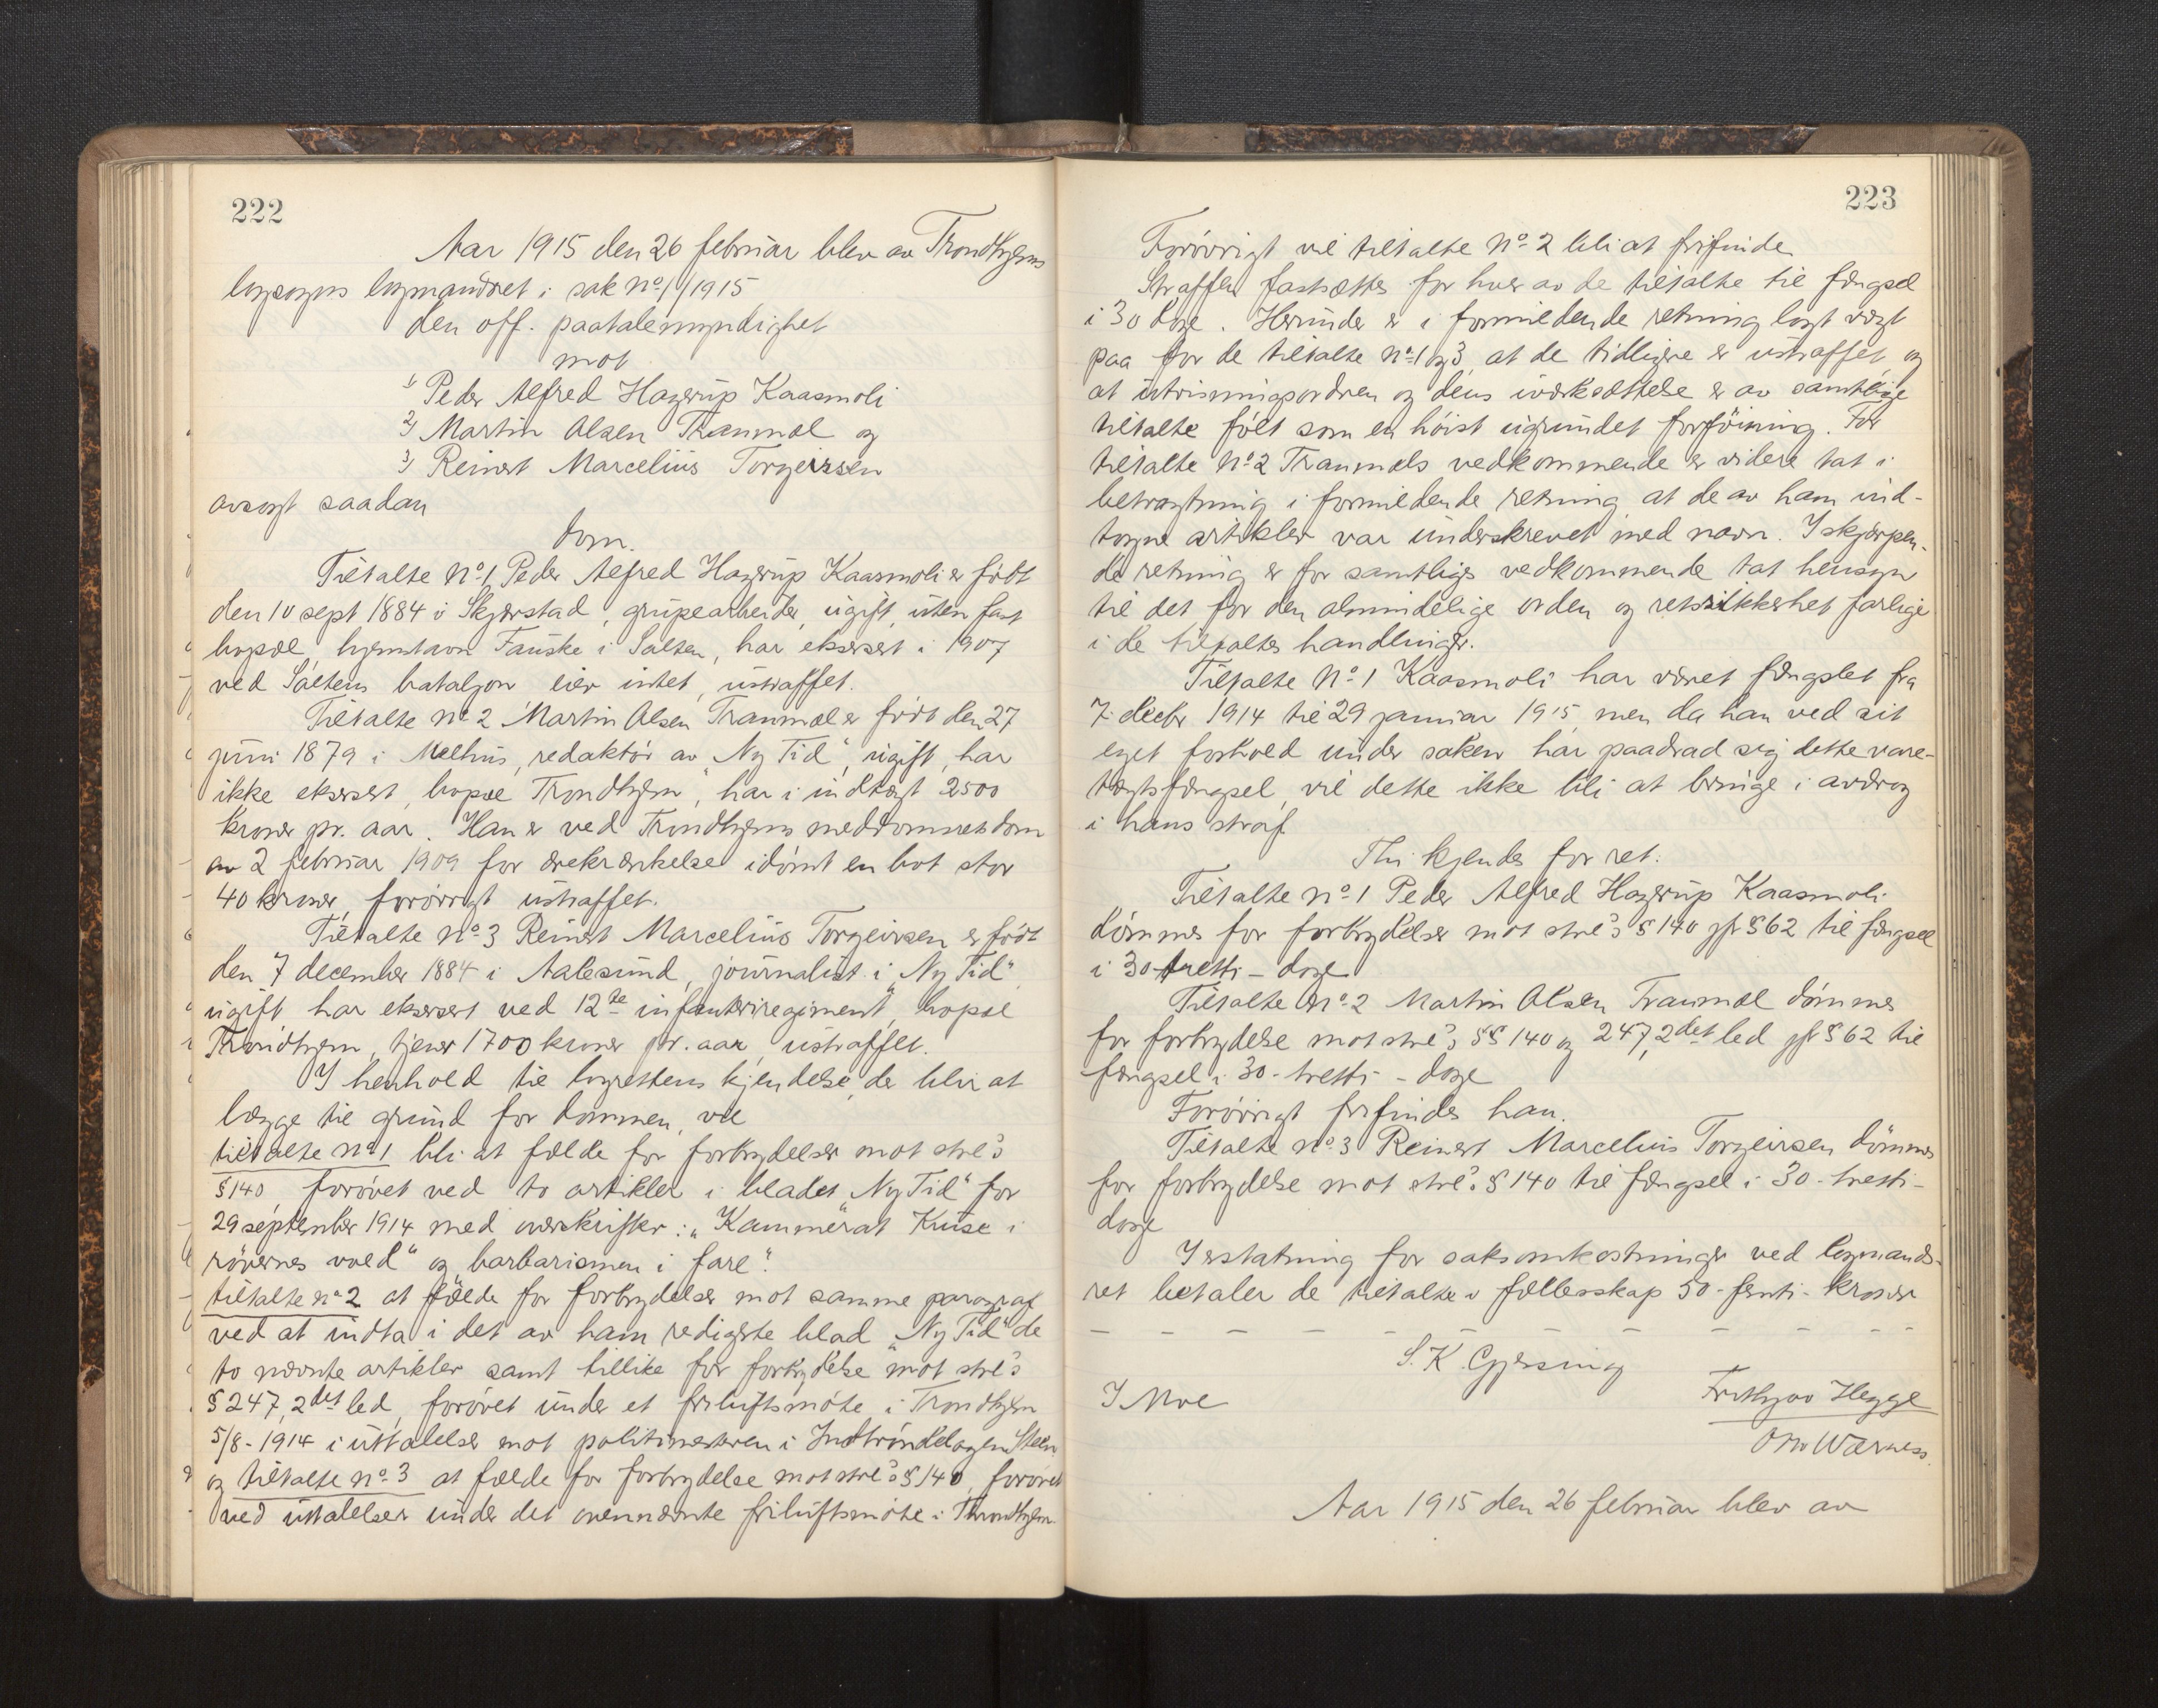 222
Aar 1915 den 26 februar blev av Trondhjems
lagsogns lagmandsret i sak No 1/1915
den off. paatalemyndighet
mot
1) Peder Alfred Hagerup Kaasmoli
2) Martin Olsen Tranmæl og
3) Reinert Marcelius Torgeirssen
avsagt saadan
dom.
Tiltalte No 1, Peder Alfred Hagerup Kaasmoli er født
den 10 sept 1884 i Skjerstad, grupearbeider, ugift, uten fast
bopæl, hjemstavn Fauske i Salten, har eksersert i 1907
ved Saltens bataljon eier intet, ustraffet.
Tiltalte no 2 Martin Olsen Tranmæl er født den 27
juni 1879 i Melhus, redaktör av "Ny Tid", ugift, har
ikke eksersert, bopæl Trondhjem, har i indtægt 2500
kroner pr. aar. Han er ved Trondhjems meddomsrets dom
av 2 februar 1909 for ærekrænkelse idömt en bot stor
40 kroner, forövrigt ustraffet.
Tiltalte No 3 Reinert Marcelius Torgeirsen er född
den 7 december 1884 i Aalesund, journalist i "Ny Tid"
ugift har eksersert ved 12te infanteriregiment, bopæl
Trondhjem, tjener 1700 kroner pr. aar, ustraffet.
I henhold til lagrettens kjendelse, der blir at
lægge til grund for dommen, vil
tiltalte no 1 bli at fælde for forbrydelser mot strl's
§ 140 forövet ved to artikler i bladet "Ny Tid" for
29 september 1914 med overskrifter: "Kammerat Kruse i
rövernes vold" og "barbarismen i fare".
tiltalte no 2 at fælde for forbrydelser mot samme paragraf
ved at indta i det av ham redigerte blad "Ny Tid" de
to nævnte artikler samt tillike for forbrydelse mot strl's
§ 247, 2det led, forövet under et friluftsmöte i Trondhjem
5/8-1914 i uttalelser mot politimesteren i Indtröndelagen Steen
og tiltalte no 3 at fælde for forbrydelse mot strl's § 140, forövet
ved uttalelser under det ovennævnte friluftsmöte i Trondhjem.
223
Forövrigt vil tiltalte No 2 bli at frifinde
Straffen fastsættes for hver av de tiltalte til fængsel
i 30 dage. Herunder er i formildende retning lagt vægt
paa for de tiltalte no 1 og 3, at de tidligere er ustraffet og
at utvisningsordren og dens iverksættelse er av samtlige
tiltalte følt som en höist ugrundet forföining. For
tiltalte No 2 Tranmæls vedkommende er videre tat i
betragtning i formildende retning at de av ham ind-
tagne artikler var underskrevet med navn. I skjærpen-
de retning er for samtliges vedkommende tat hensyn
til det for den almindelige orden og retssikkerhet farlige
i de tiltaltes handlinger.
Tiltalte No 1 Kaasmoli har været fængslet fra
7 decbr 1914 til 29 januar 1915, men da han ved sit
eget forhold under saken har paadrad sig dette vare-
tægtsfængsel, vil dette ikke bli at bringe i avdrag
i hans straf
Thi kjendes for ret:
Tiltalte no 1 Peder Alfred Hagerup Kaasmoli
dömmes for forbrydelser mot strl's § 140 jfr § 62 til fængsel
i 30-tretti- dage
Tiltalte No 2 Martin Olsen Tranmæl dömmes
for forbrydelse mot strl's §§ 140 og 247, 2det led jfr § 62 til
fængsel i 30-tretti- dage
Forövrigt frifindes han.
Tiltalte no 3 Reinert Marcelius Torgeirsen dömmes
for forbrydelse mot strl's § 140 til fængsel i 30-tretti-
dage
I erstatning for saksomkostninger ved lagmands-
ret betaler de tiltalte i fællesskap 50-femti- kroner
S. K. Gjessing
I Moe
Frithjov Hegge
Wærness.
Aar 1915 den 26 februar blev av